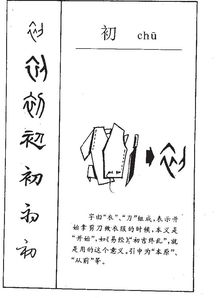 初 chū
字由“衣”、“刀”组成，表示开
始拿剪刀做衣服的时候，本义是
“开始”，如《易经》“初吉终乱”，就
是用的这个意义，引申为“本原”、
“从前”等。
初
初
初